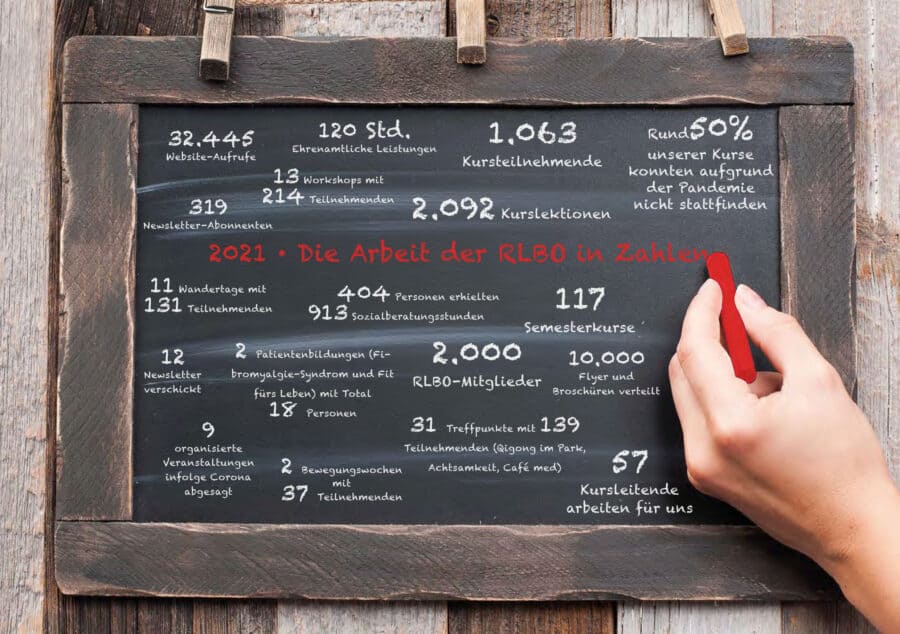 32.445
Website-Aufrufe
120 Std.
Ehrenamtliche Leistungen
1.063
Kursteilnehmende
Rund 50%
unserer Kurse
konnten aufgrund
der Pandemie
nicht stattfinden
13 Workshops mit
214 Teilnehmenden
319
Newsletter-Abonnenten
2.092 Kurslektionen
2021 • Die Arbeit der RLBO in Zahlen
11 Wandertage mit
131 Teilnehmenden
404 Personen erhielten
913 Sozialberatungsstunden
117
Semesterkurse
12
Newsletter
verschickt
2 Patientenbildungen (Fi-
bromyalgie-Syndrom und Fit
fürs Leben) mit Total
18 Personen
2.000
RLBO-Mitglieder
10.000
Flyer und
Broschüren verteilt
9
organisierte
Veranstaltungen
infolge Corona
abgesagt
2 Bewegungswochen
mit
37 Teilnehmenden
31 Treffpunkte mit 139
Teilnehmenden (Qigong im Park,
Achtsamkeit, Café med)
57
Kursleitende
arbeiten für uns